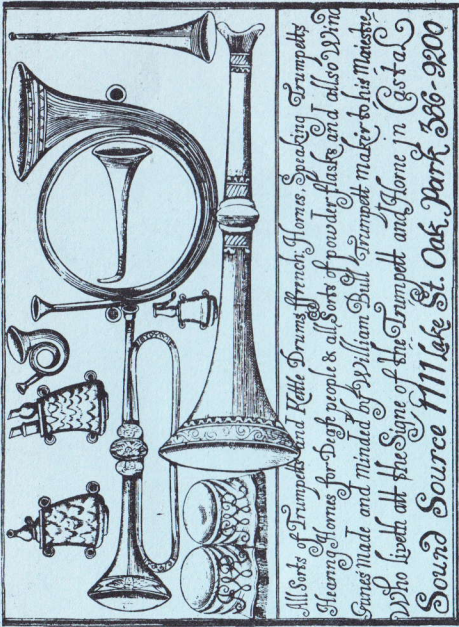 All Sorts of Trumpetts and Kettle Drums ffrench Hornes Speaking Trumpetts
Hearing Hornes for Deaft people & all Sorts of powder flasks and allso Wind
Gunes Made and Minded by William Bull Trumpett maker to his Maiestie
Who Liveth att the Signe of the Trumpett and Horne in Castal
Sound Source 1111 Lake St. Oak Park 386-9200